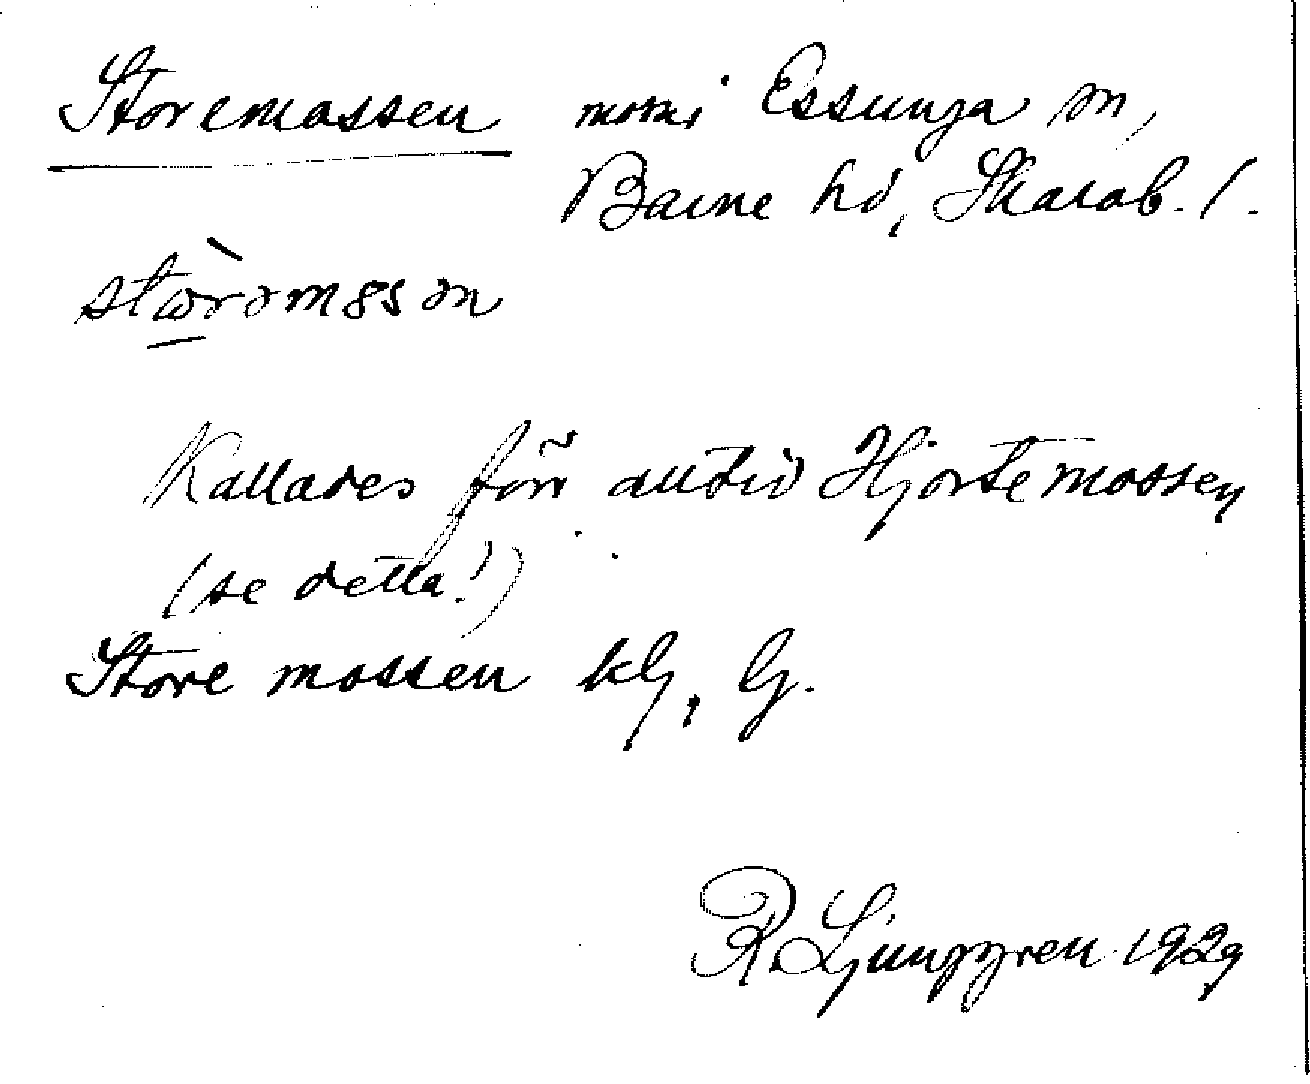 Storemossen mosse i Essunga sn,
Barne hd, Skarab. l.
stòrəmɵsən
Kallades förr alltid Hjortemossen
(se detta!)
Store mossen kg, G.
R. Ljunggren 1929